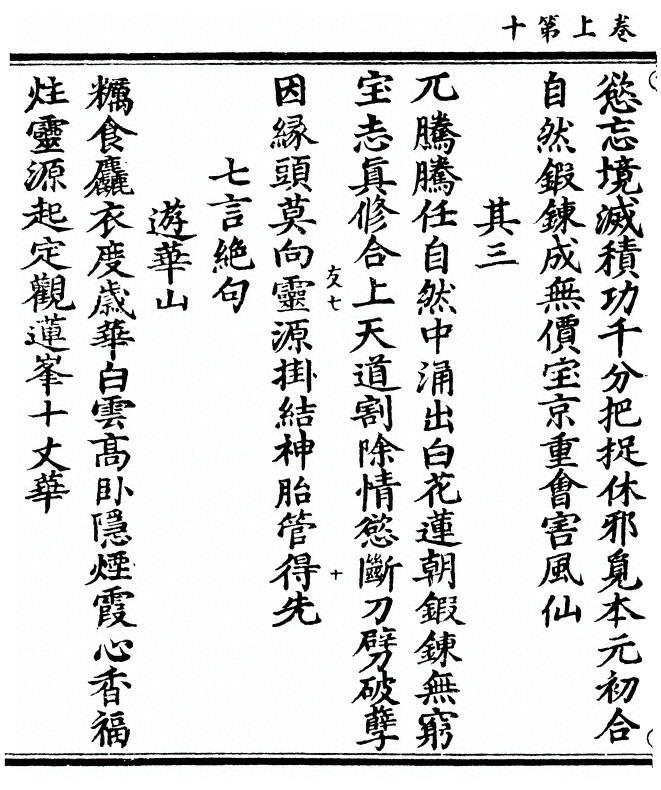 卷上第十
慾忘境滅積功千分把捉休邪覓本元初合
自然鍜鍊成無價宝京重會害風仙
其三
兀騰騰任自然中涌出白花蓮朝鍜鍊無窮
宝志眞修合上天道割除情慾斷刀劈破孽
因縁頭莫向靈源掛結神胎管得先
友七
十
七言絶句
遊華山
糲食麤衣度歳華白雲高卧隱煙霞心香福
炷靈源起定觀蓮峯十丈華